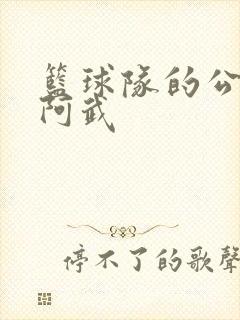 籃球隊的公
阿武
停不了的歌聲